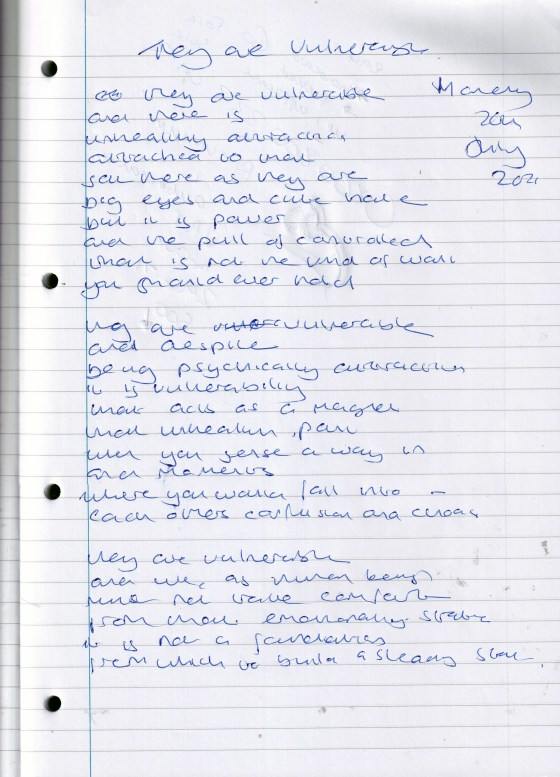 They are vulnerable
they are vulnerable
and there is
unhealthy attraction
attached to that
you see as they are
big eyes and cute
but it is power
and the pull of
that is not the kind of want
you should ever hold
they are vulnerable
and despite
being psychically attractive
it is vulnerability
that acts as a magnet
that unhealthy part
when you sense a way in
and moments
where you would fall into –
each others confusion and
they are vulnerable
and we, as human beings
must not take comfort
from that emotionally
it is not a foundation
from which to build a steady
Monday
July
2021